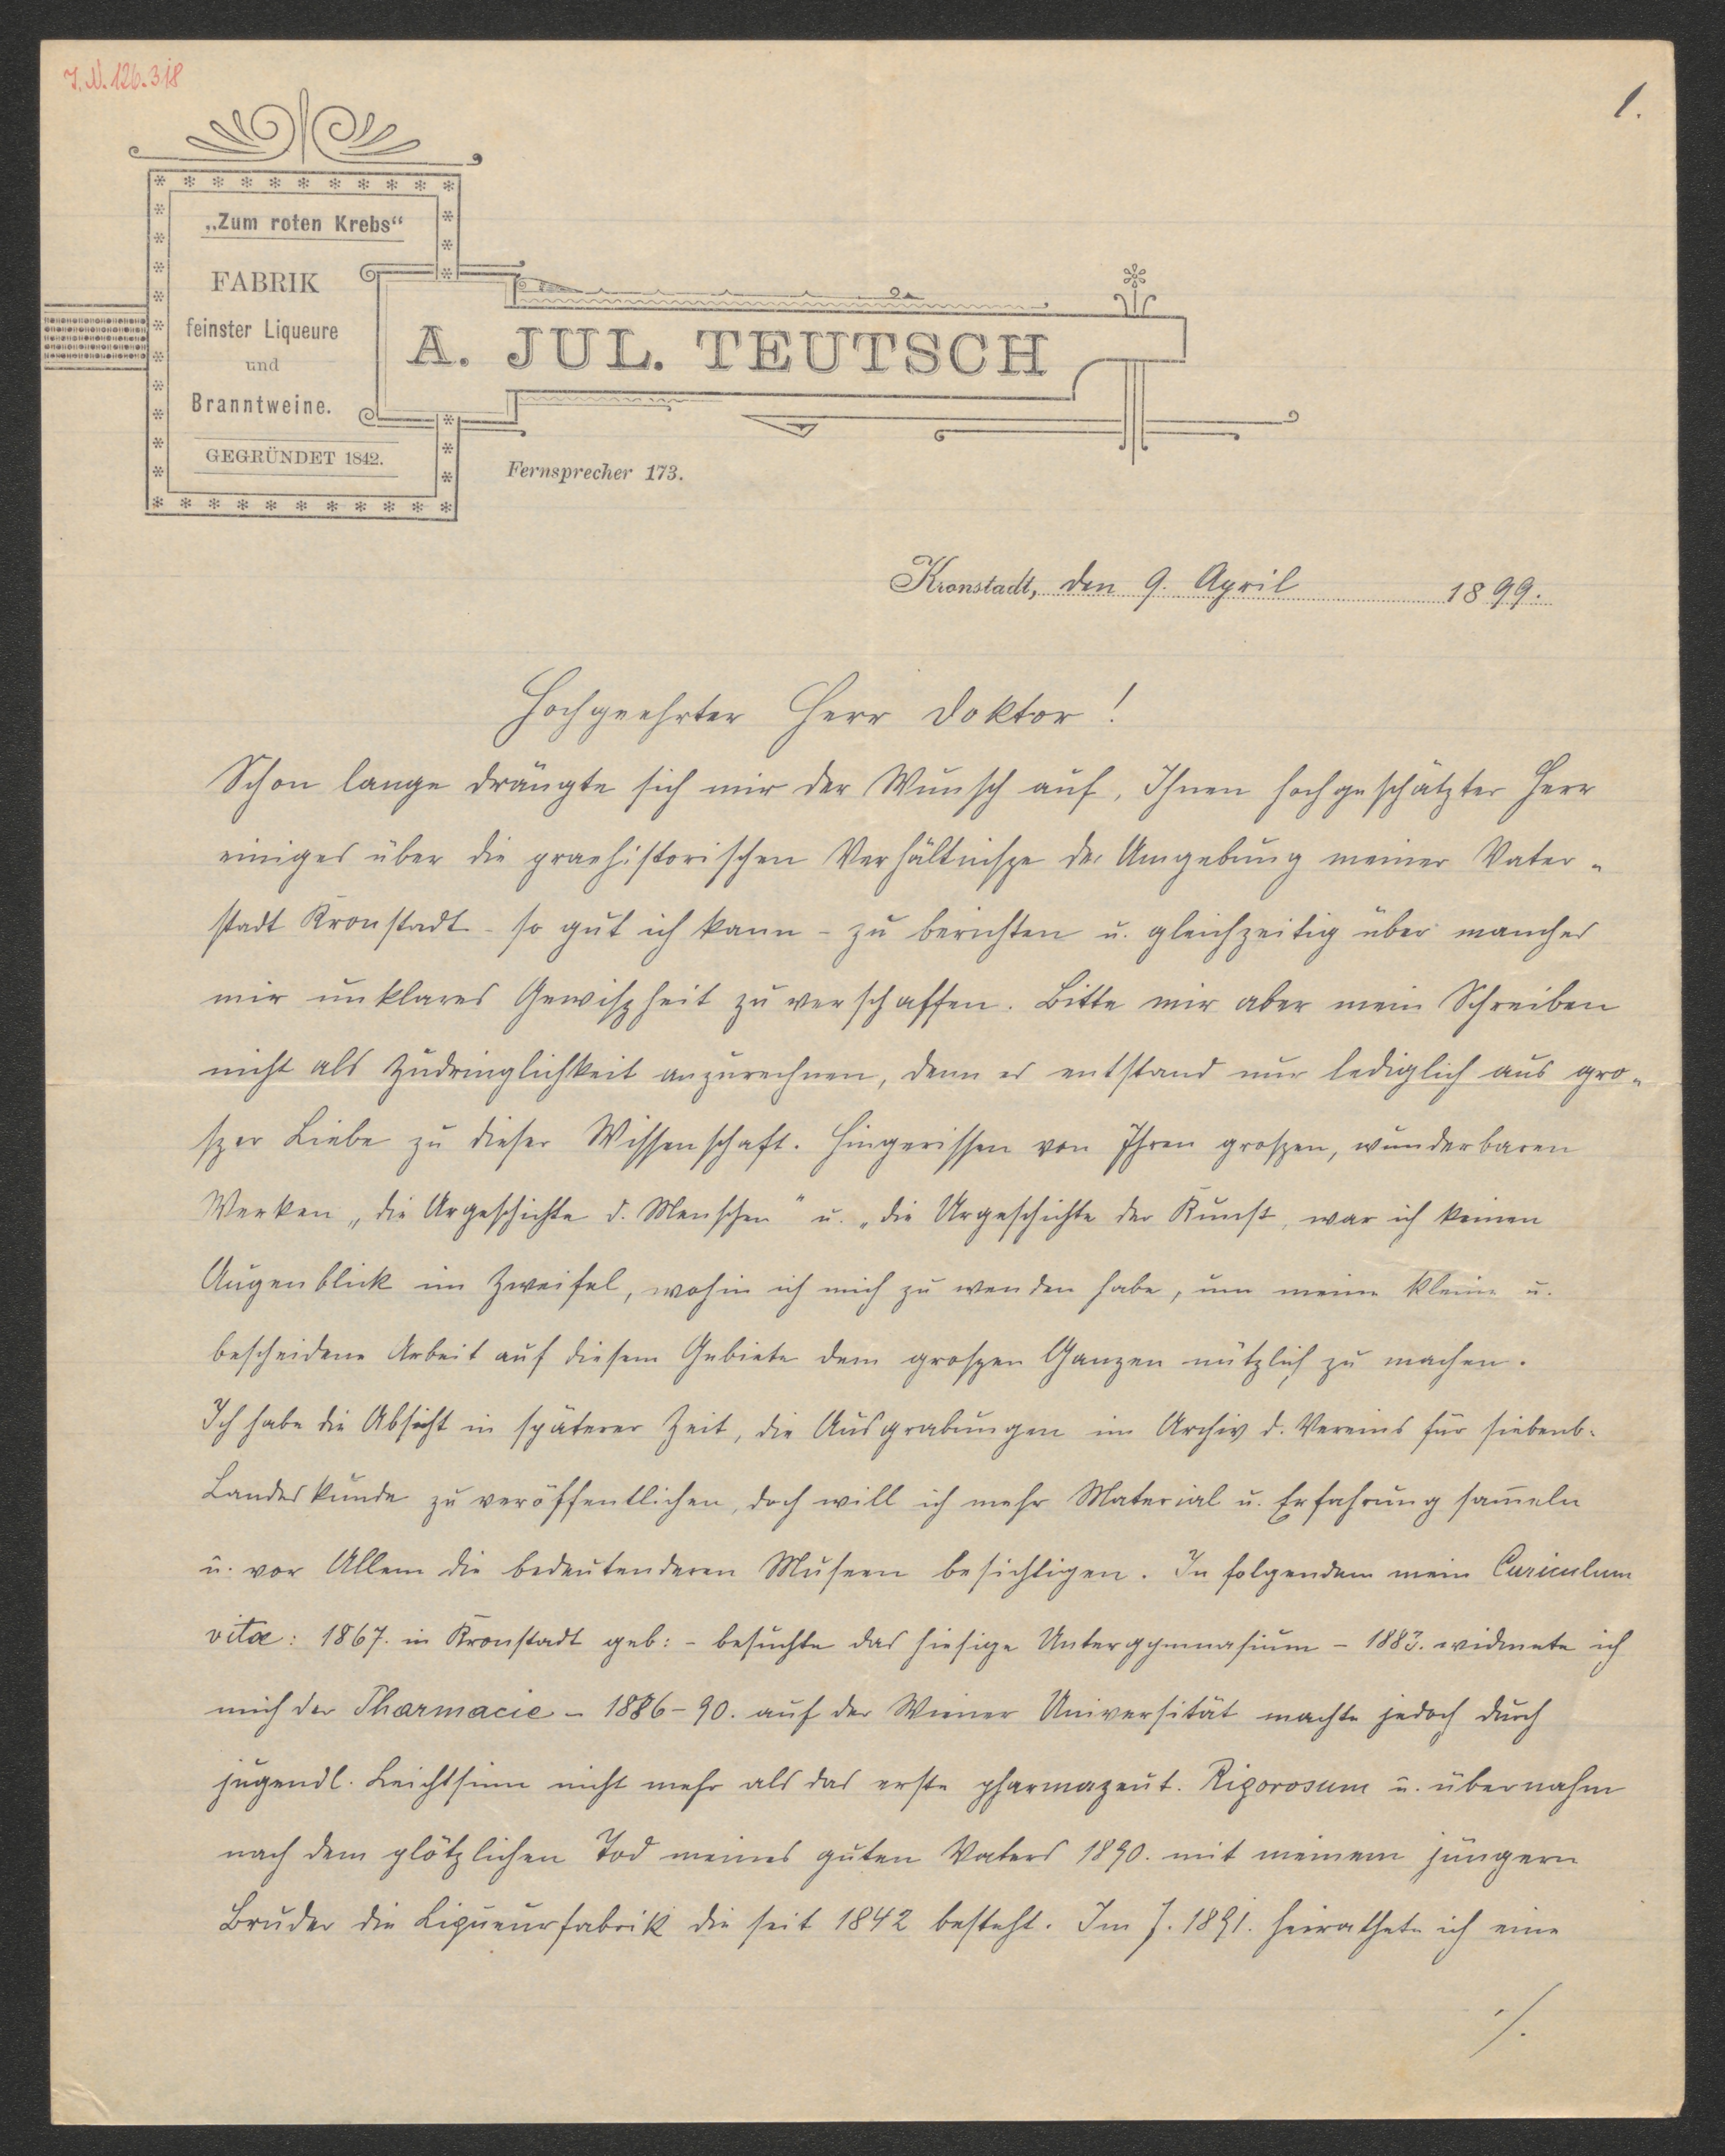 J.N. 126.318
1.
„Zum roten Krebs“
FABRIK
feinster Liqueure
und
Branntweine.
GEGRÜNDET 1842.
A. JUL. TEUTSCH
Fernsprecher 173.
Kronstadt, den 9. April 1899.
Hochgeehrter Herr Doktor!
Schon lange drängte sich mir der Wunsch auf, Ihnen hochgeschätzter Herr
einiges über die praehistorischen Verhältnisze der Umgebung meiner Vater-
stadt Kronstadt - so gut ich kann - zu berichten u. gleichzeitig über manches
mir unklares Gewiszheit zu verschaffen. Bitte mir aber mein Schreiben
nicht als Zudringlichkeit anzurechnen, denn es entstand nur lediglich aus gro-
szer Liebe zu dieser Wissenschaft. Hingerissen von Ihren groszen, wunderbaren
Werken „die Urgeschichte d. Menschen“ u. „die Urgeschichte der Kunst, war ich keinen
Augenblick im Zweifel, wohin ich mich zu wenden habe, um meine kleine u.
bescheidene Arbeit auf diesem Gebiete dem groszen Ganzen nützlich zu machen.
Ich habe die Absicht in späterer Zeit, die Ausgrabungen im Archiv d. Vereins für siebenb.
Landeskunde zu veröffentlichen, doch will ich mehr Material u. Erfahrung sam̄eln
u. vor Allem die bedeutenderen Museen besichtigen. In folgendem mein Curiculum
vitæ: 1867. in Kronstadt geb: - besuchte das hiesige Untergymnasium - 1883. widmete ich
mich der Pharmacie - 1886-90. auf der Wiener Universität machte jedoch durch
jugendl. Leichtsinn nicht mehr als das erste pharmazeut. Rigorosum u. übernahm
nach dem plötzlichen Tod meines guten Vaters 1890. mit meinem jüngern
Bruder die Liqueurfabrik die seit 1842 besteht. Im J. 1891. heirathete ich eine
./.